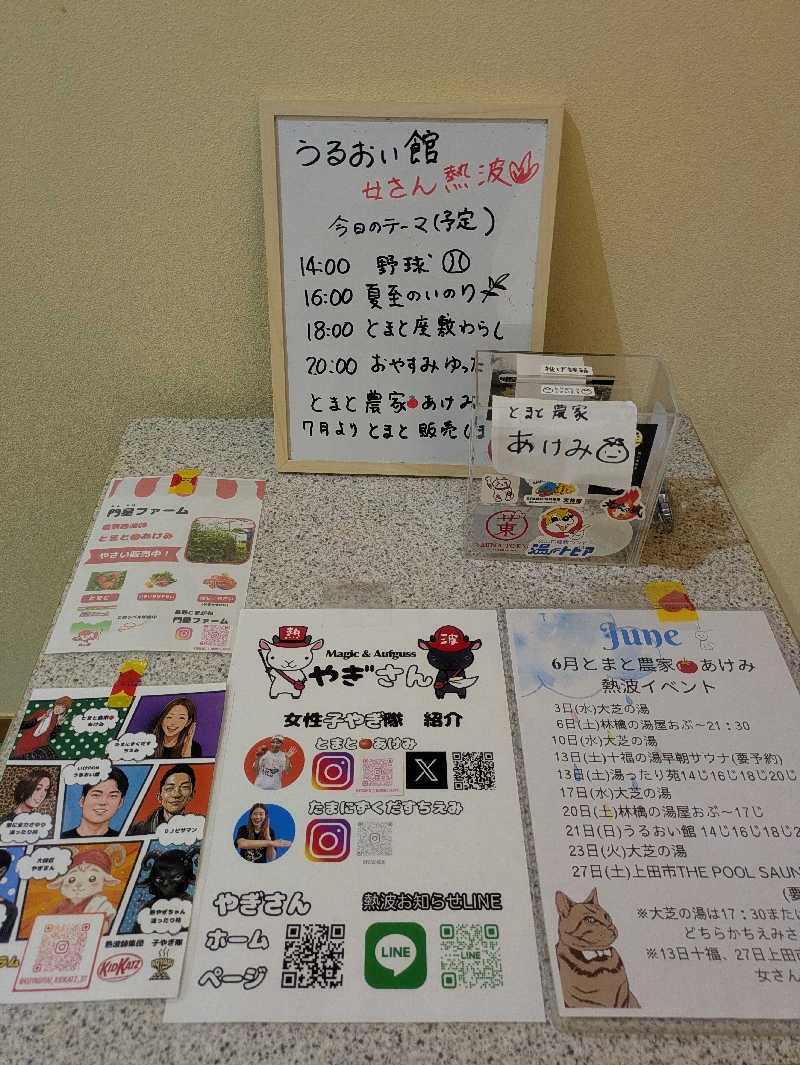 うるおい館
女さん熱波
今日のテーマ(予定)
14:00 野球
16:00 夏至のいのり
18:00 とまと座敷わらし
20:00 おやすみゆった
とまと農家🍅あけみ
7月よりとまと販売しま
とまと農家
あけみ
門星ファーム
とまと🍅あけみ
やさい販売中!
とまと
門星ファーム
Magic & Aufguss
熱
波
やぎさん
女性子やぎ隊 紹介
とまと🍅あけみ
たまにすくだすちえみ
やぎさん
ホーム
ページ
熱波お知らせLINE
LINE
とまと農家🍅
あけみ
たまにすくだす
ちえみ
いけPON
うるおい館
DJピサマン
大師匠
やぎさん
熱波師集団 子やぎ隊
KIDKATZ
June
6月とまと農家🍅あけみ
熱波イベント
3日(水)大芝の湯
6日(土)林檎の湯屋おぶ~21:30
10日(水)大芝の湯
13日(土)十福の湯早朝サウナ(要予約)
13日(土)湯ったり苑14じ16じ18じ20じ
17日(水)大芝の湯
20日(土)林檎の湯屋おぶ~17じ
21日(日)うるおい館 14じ16じ18じ2
23日(火)大芝の湯
27日(土)上田市THE POOL SAUN
(要
※大芝の湯は17:30または
どちらかちえみさ
※13日十福、27日上田市
女さん